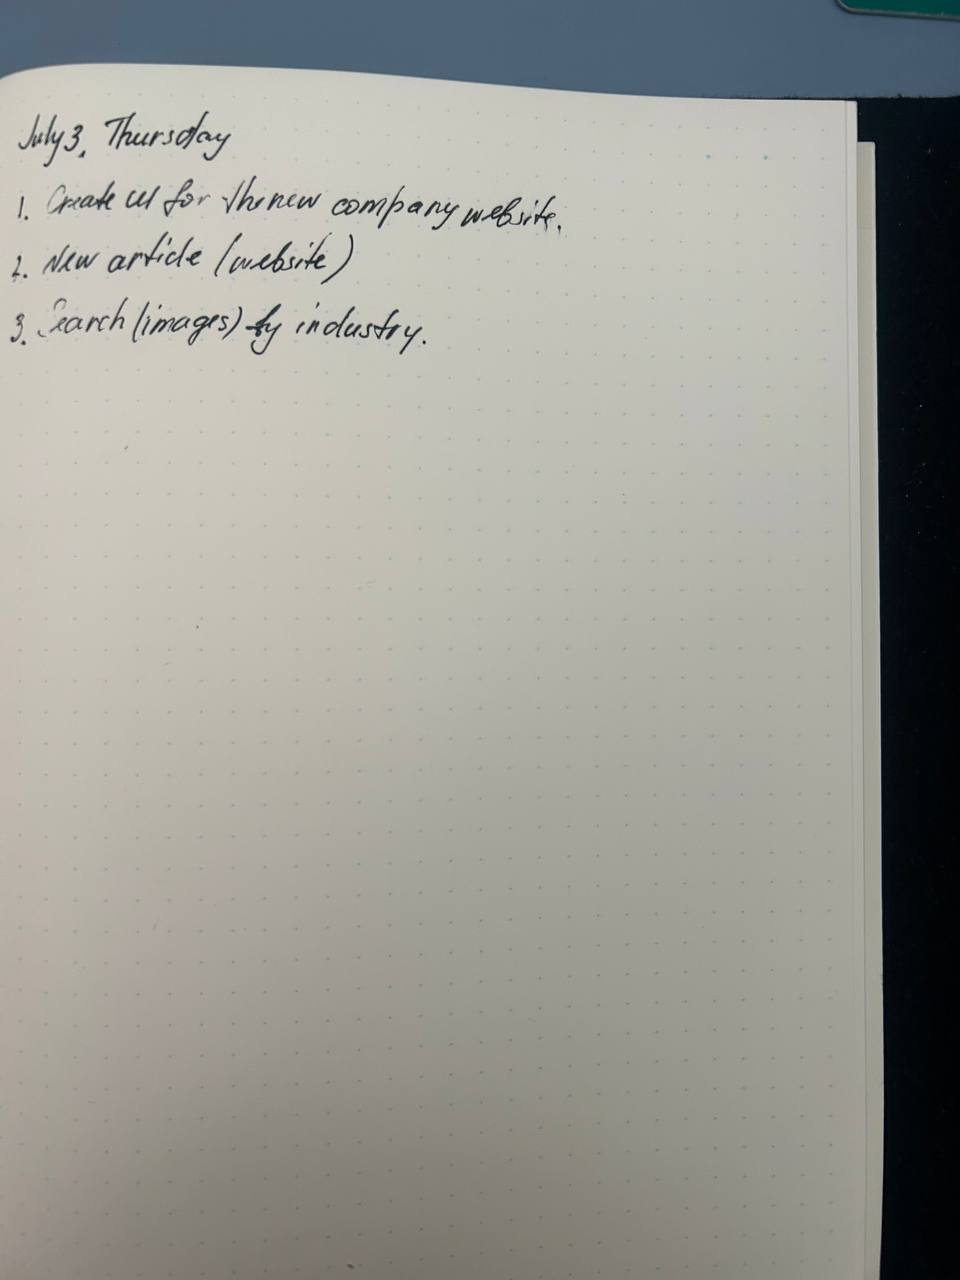 July 3, Thursday
1. Create UI for the new company website.
2. New article (website)
3. Search (images) by industry.